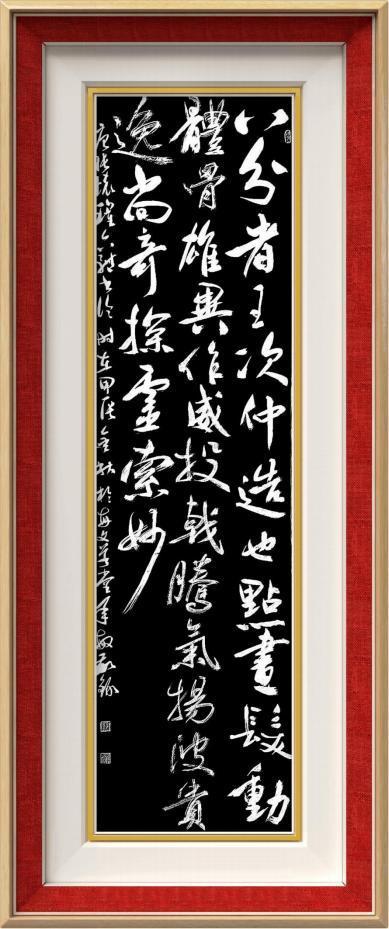 八分者王次仲造也點畫發動
體骨雄異作威投戟騰氣揚波貴
逸尚奇探虛索妙
唐張懷瓘六體書論 時在甲辰金秋於